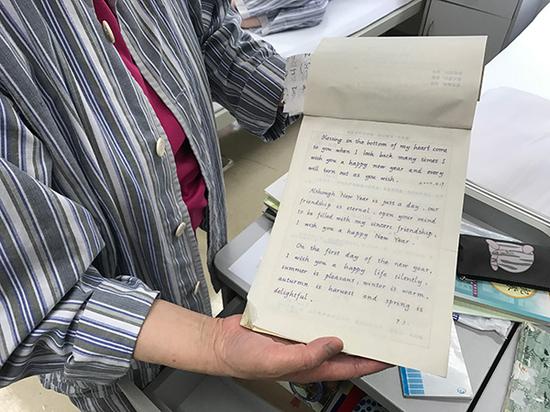 Blessing on the bottom of my heart come
to you when I look back many times I
wish you a happy new year and every
will turn out as you wish.
Although New Year is just a day, our
friendship is eternal, open your mind
to be filled with my sincere friendship.
I wish you a happy New Year.
On the first day of the new year,
I wish you a happy life silently,
summer is pleasant, winter is warm,
autumn is harvest and spring is
delightful.